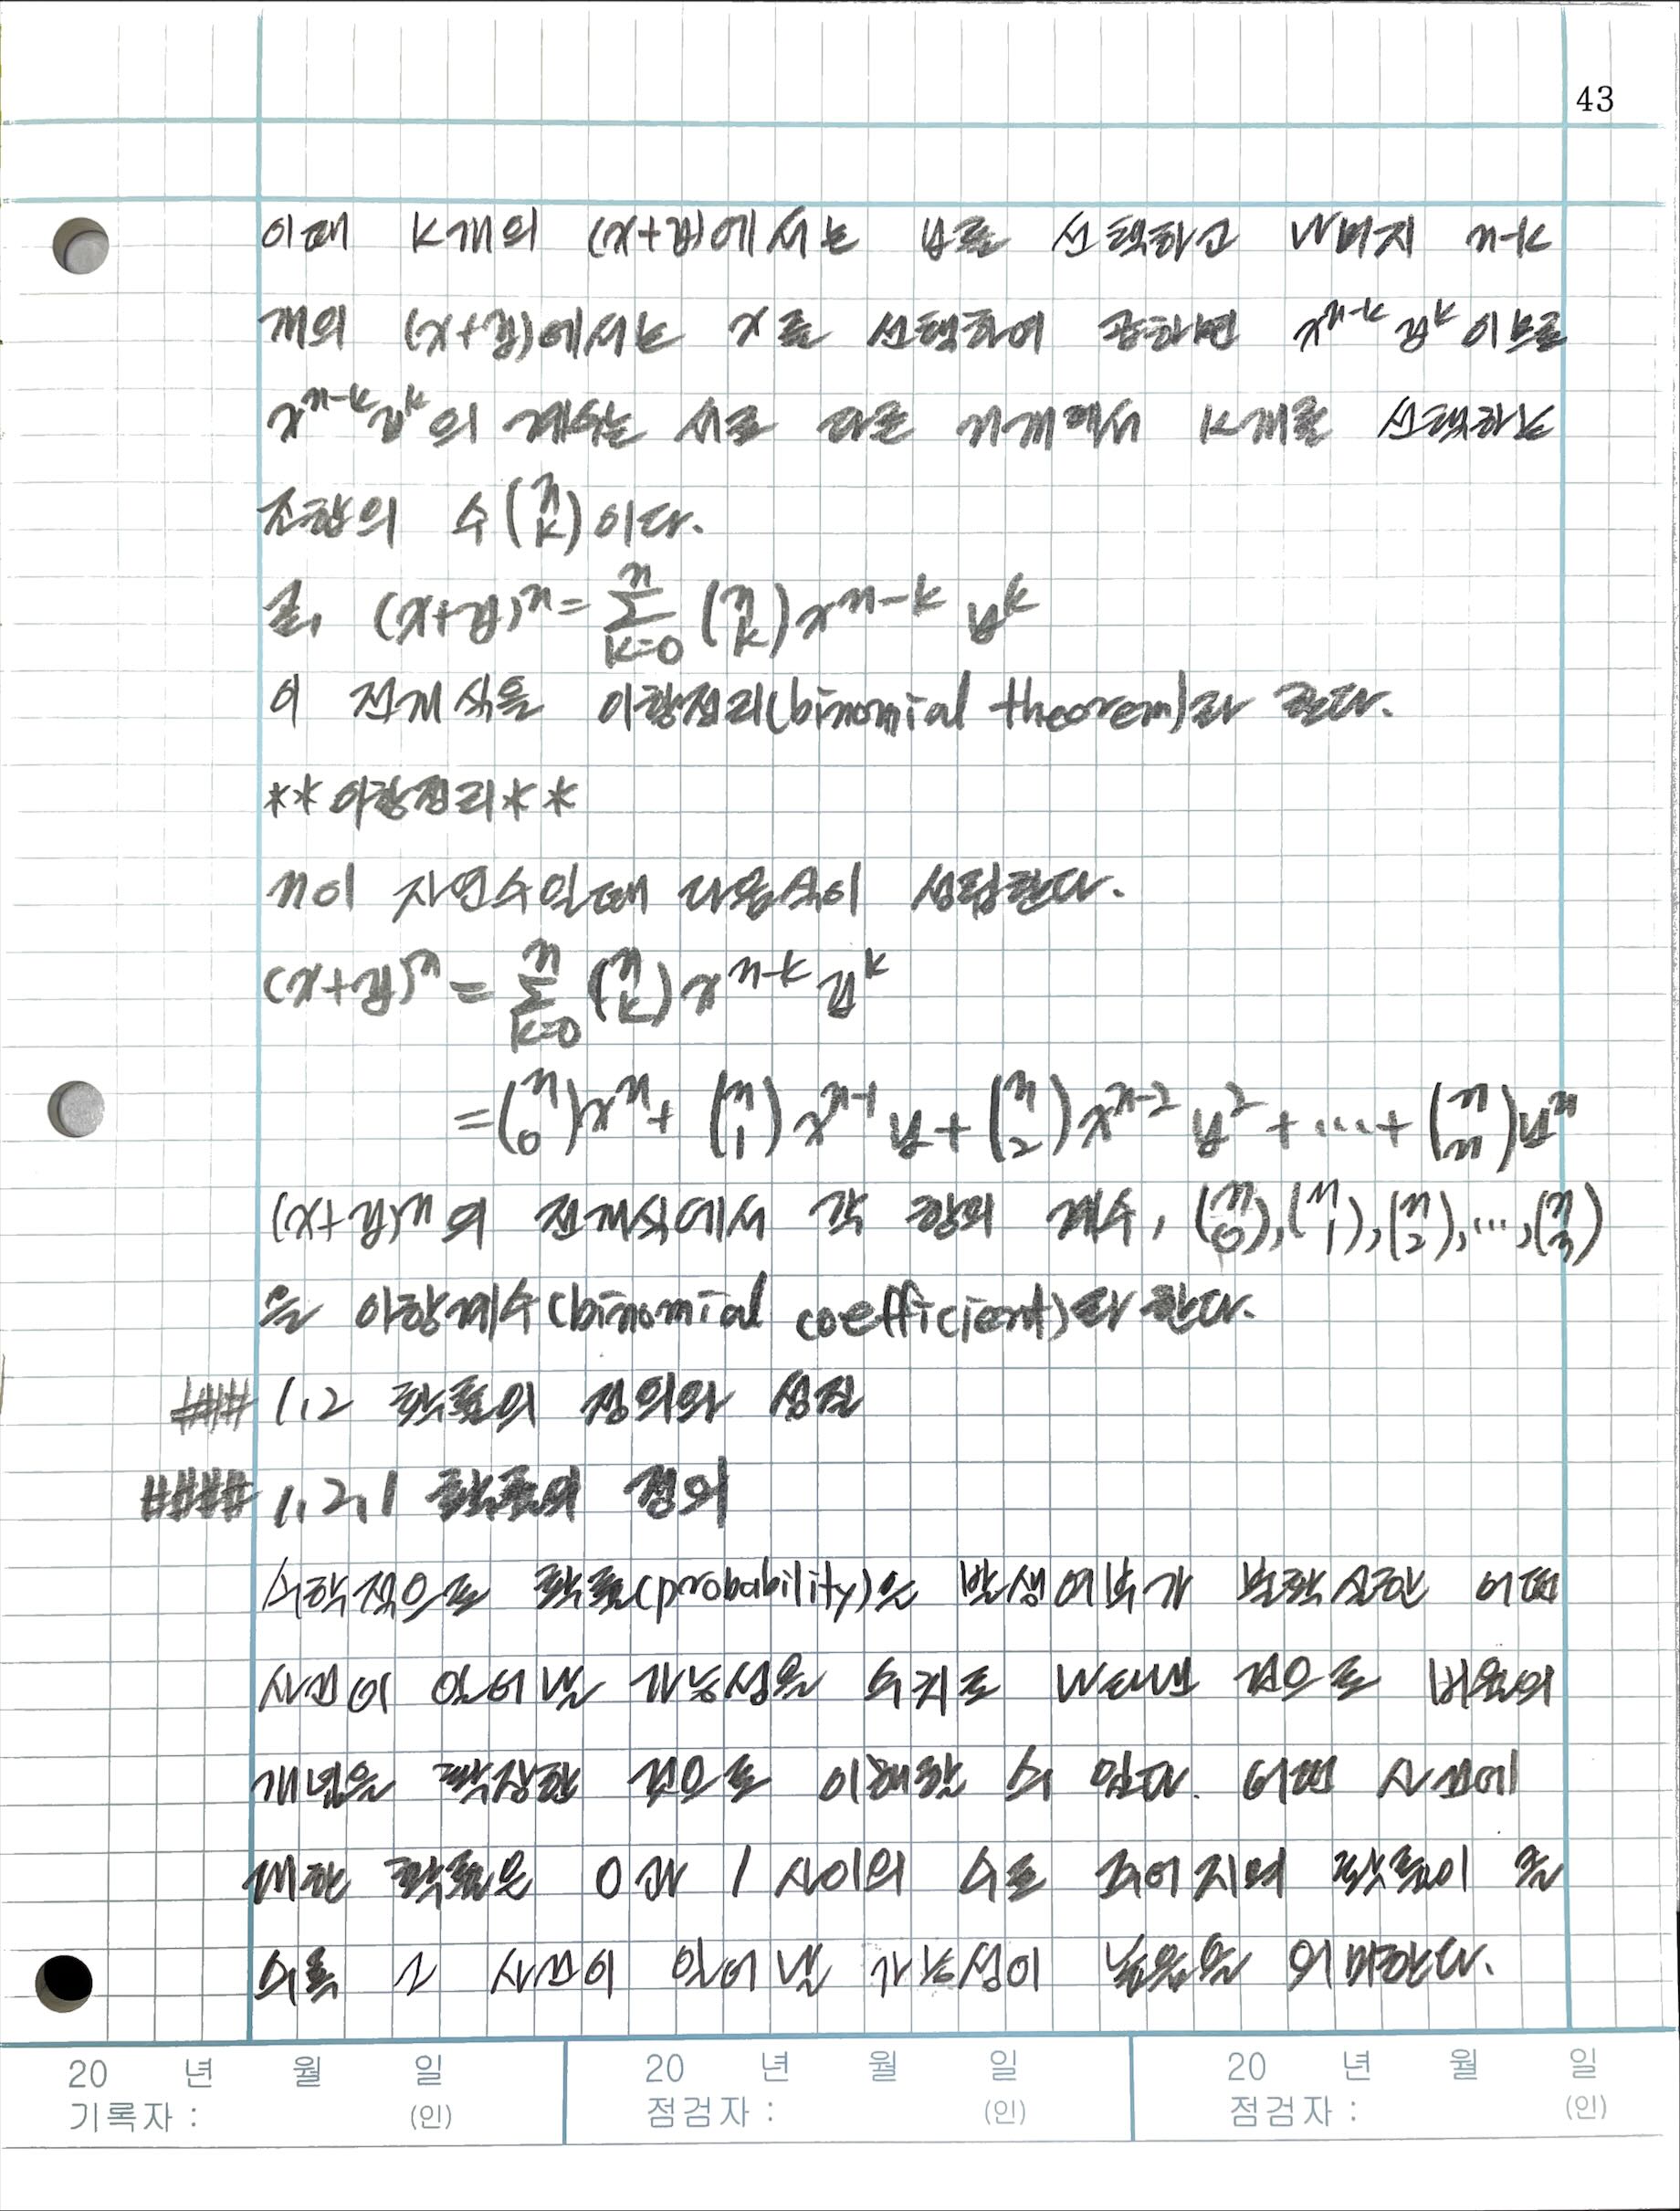 43
이때 k개의 (x+y)에서는 y를 선택하고 나머지 n-k
개의 (x+y)에서는 x를 선택하여 곱하면 x^{n-k} y^k 이므로
x^{n-k} y^k의 계수는 서로 다른 n개에서 k개를 선택하는
조합의 수 (n k)이다.
즉, (x+y)^n = Σ_{k=0}^{n} (n k) x^{n-k} y^k
이 전개식을 이항정리(binomial theorem)라 한다.
**이항정리**
n이 자연수일때 다음식이 성립한다.
(x+y)^n = Σ_{k=0}^{n} (n k) x^{n-k} y^k
= (n 0) x^n + (n 1) x^{n-1} y + (n 2) x^{n-2} y^2 + ... + (n n) y^n
(x+y)^n의 전개식에서 각 항의 계수, (n 0), (n 1), (n 2), ..., (n n)
을 이항계수(binomial coefficient)라 한다.
### 1.2 확률의 정의와 성질
#### 1.2.1 확률의 정의
수학적으로 확률(probability)은 발생여부가 불확실한 어떤
사건이 일어날 가능성을 수치로 나타낸 것으로 비율의
개념을 확장한 것으로 이해할 수 있다. 어떤 사건에
대한 확률은 0과 1 사이의 수로 주어지며 확률이 클
수록 그 사건이 일어날 가능성이 높음을 의미한다.
20 년 월 일 20 년 월 일 20 년 월 일
기록자 : (인) 점검자 : (인) 점검자 : (인)